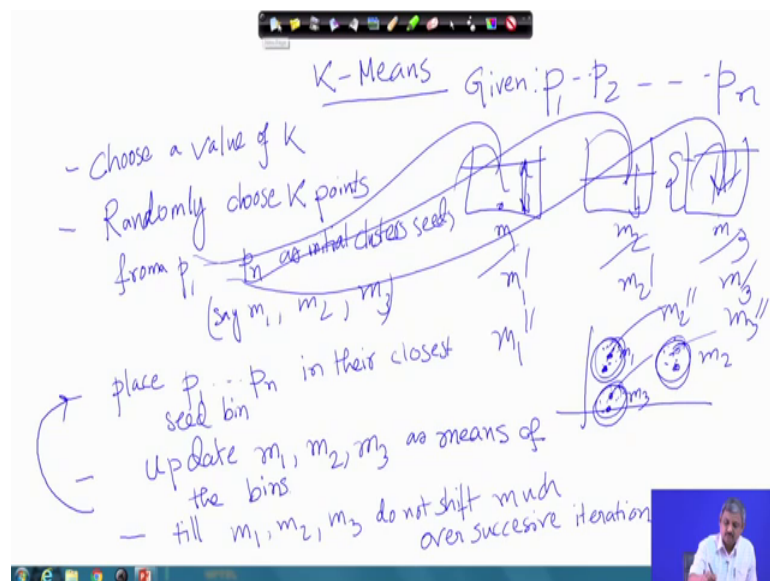 K-Means Given: p1 - p2 - - - - pn
- Choose a value of K
- Randomly choose K points
from a p1 - pn as initial clusters seeds
(say m1, m2, m3)
m1 m2 m3
m1' m2' m3'
m1''
m2'' m3''
m1 m2
m3
place p1 ... pn in their closest
seed bin
- update m1, m2, m3 as means of
the bins
- till m1, m2, m3 do not shift much
over succesive iteration